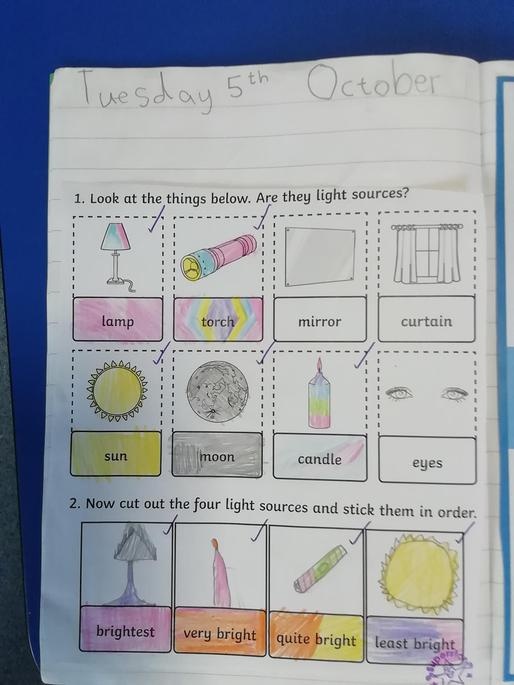 Tuesday 5th October
1. Look at the things below. Are they light sources?
lamp torch mirror curtain
sun moon candle eyes
2. Now cut out the four light sources and stick them in order.
brightest very bright quite bright least bright